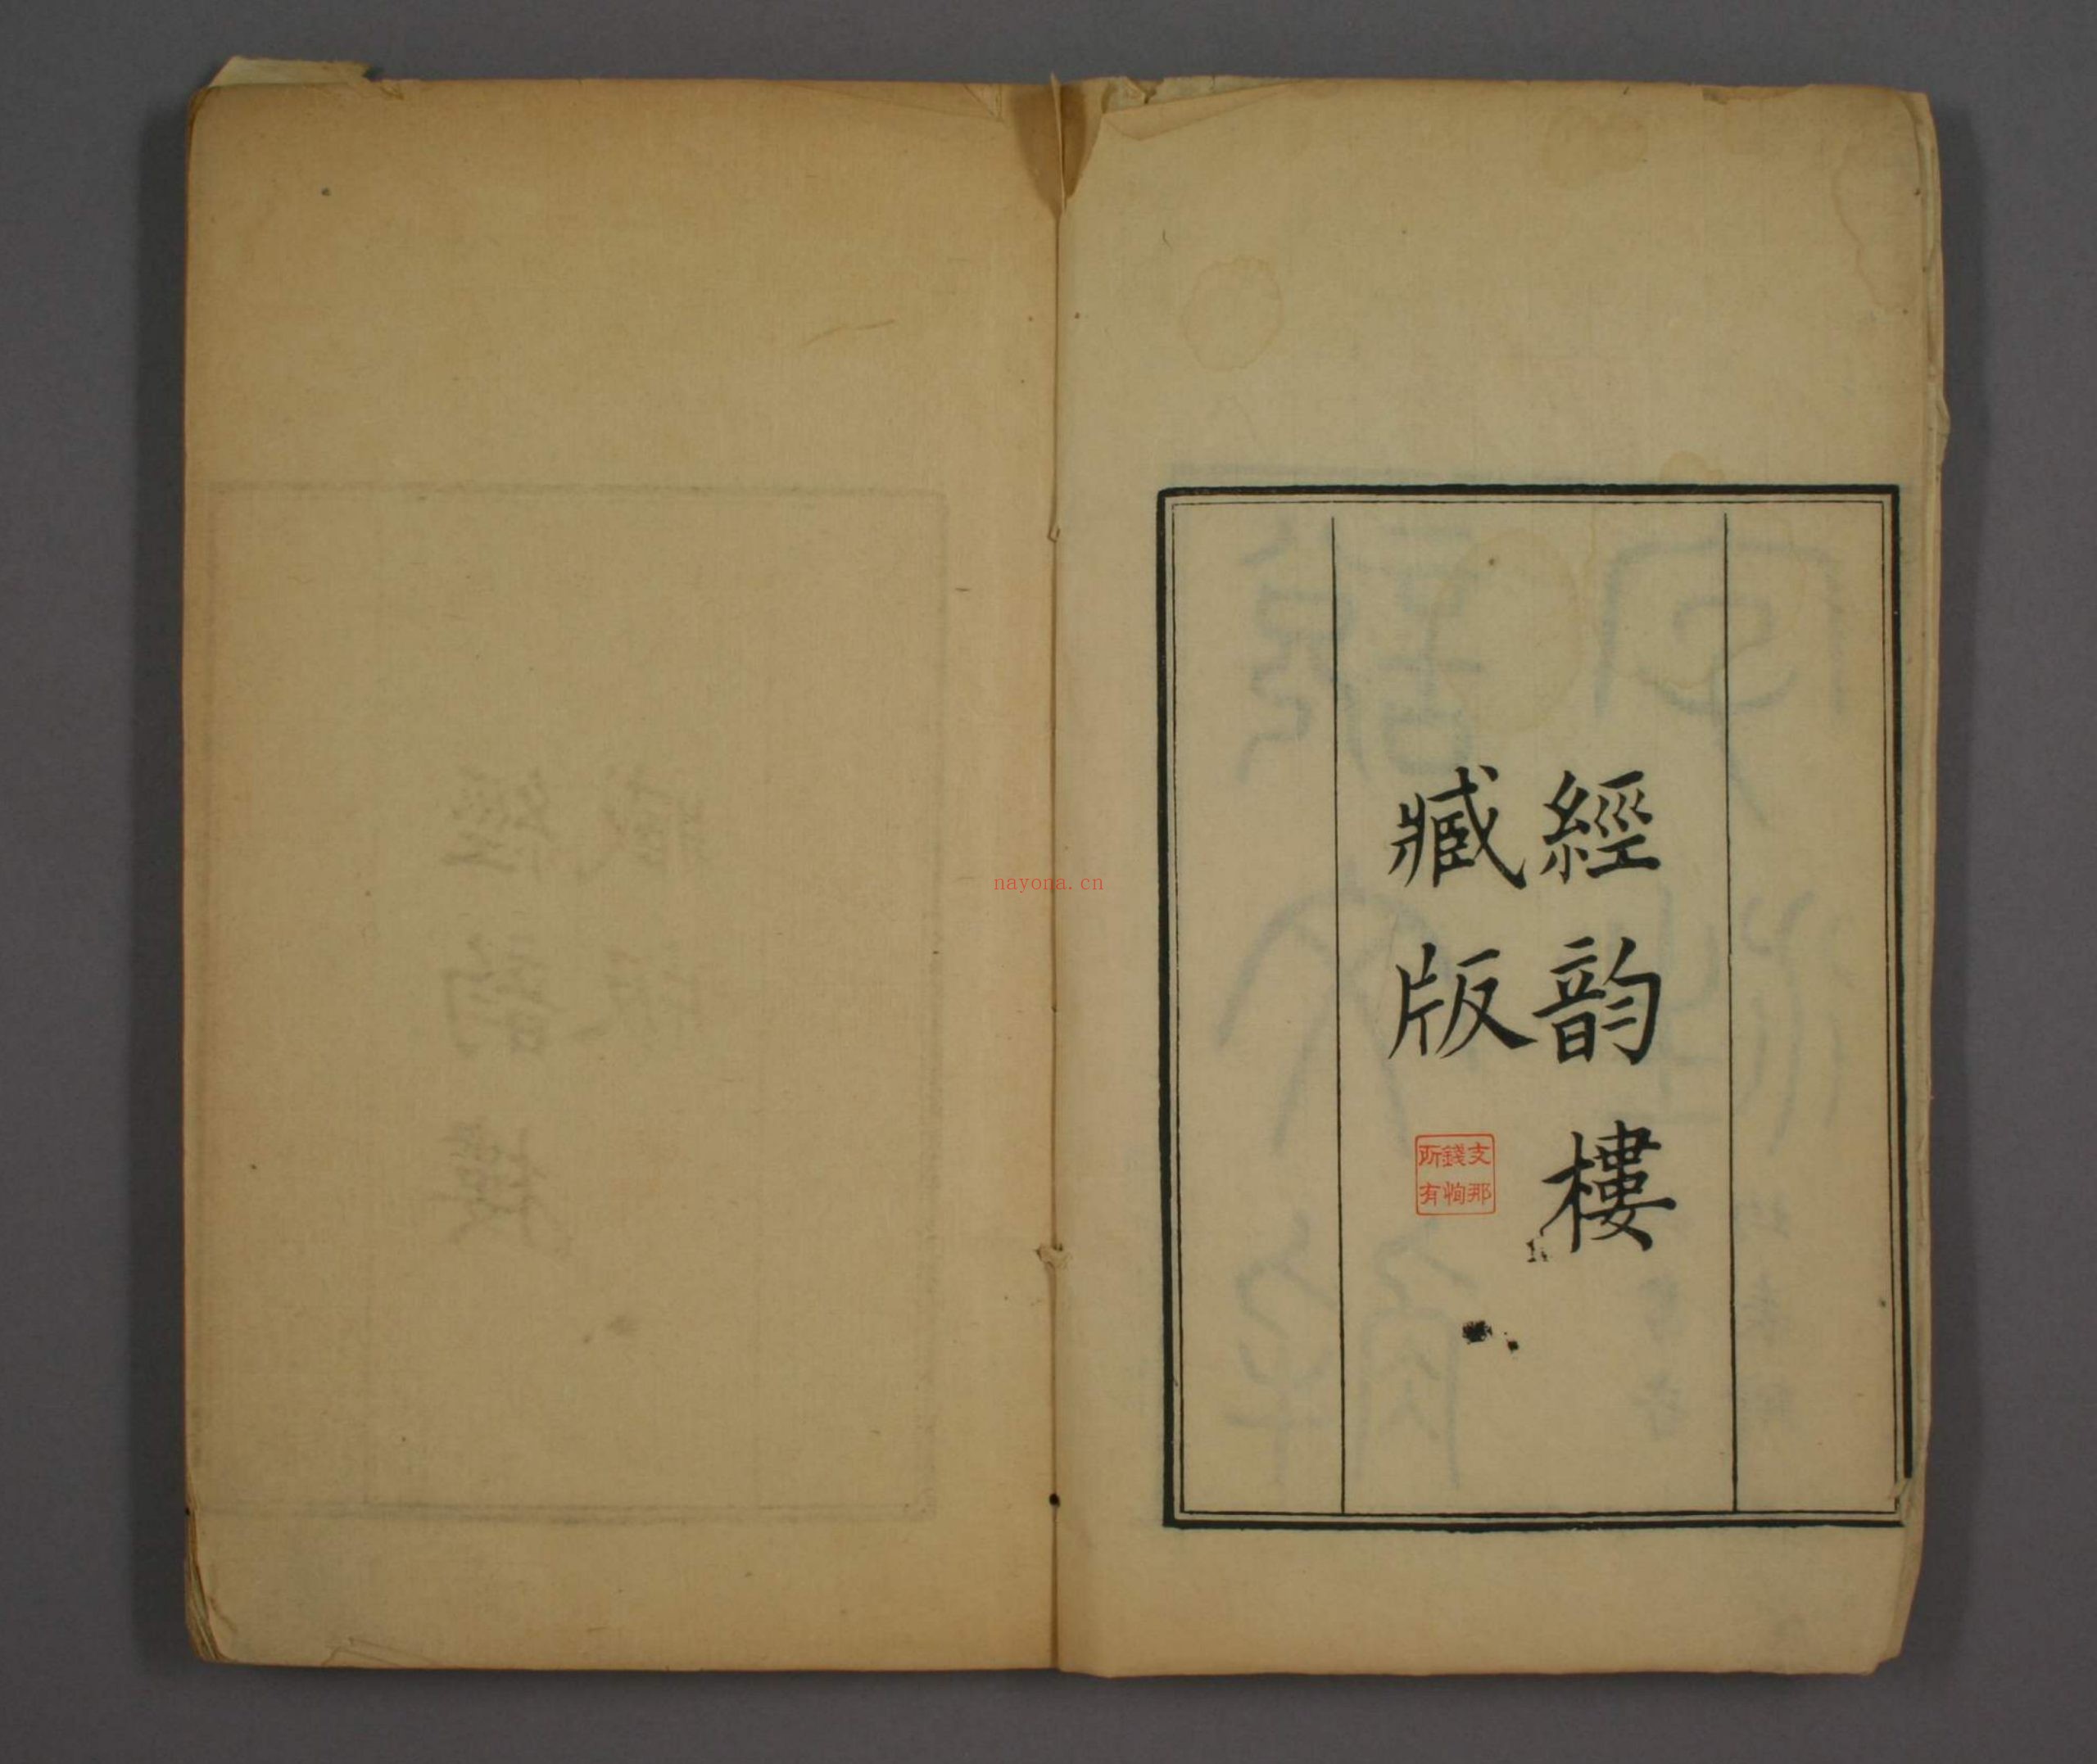 經韵樓
臧版
支那
錢恂
所有
nayona.cn